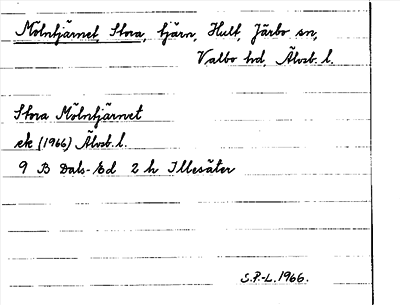 Mölntjärnet, Stora, tjärn, Hult, Järbo sn,
Valbo hd, Älvsb. l.
Stora Mölntjärnet
ek (1966) Älvsb. l.
9 B Dals-Ed 2 h Illesäter
S.P.-L. 1966.